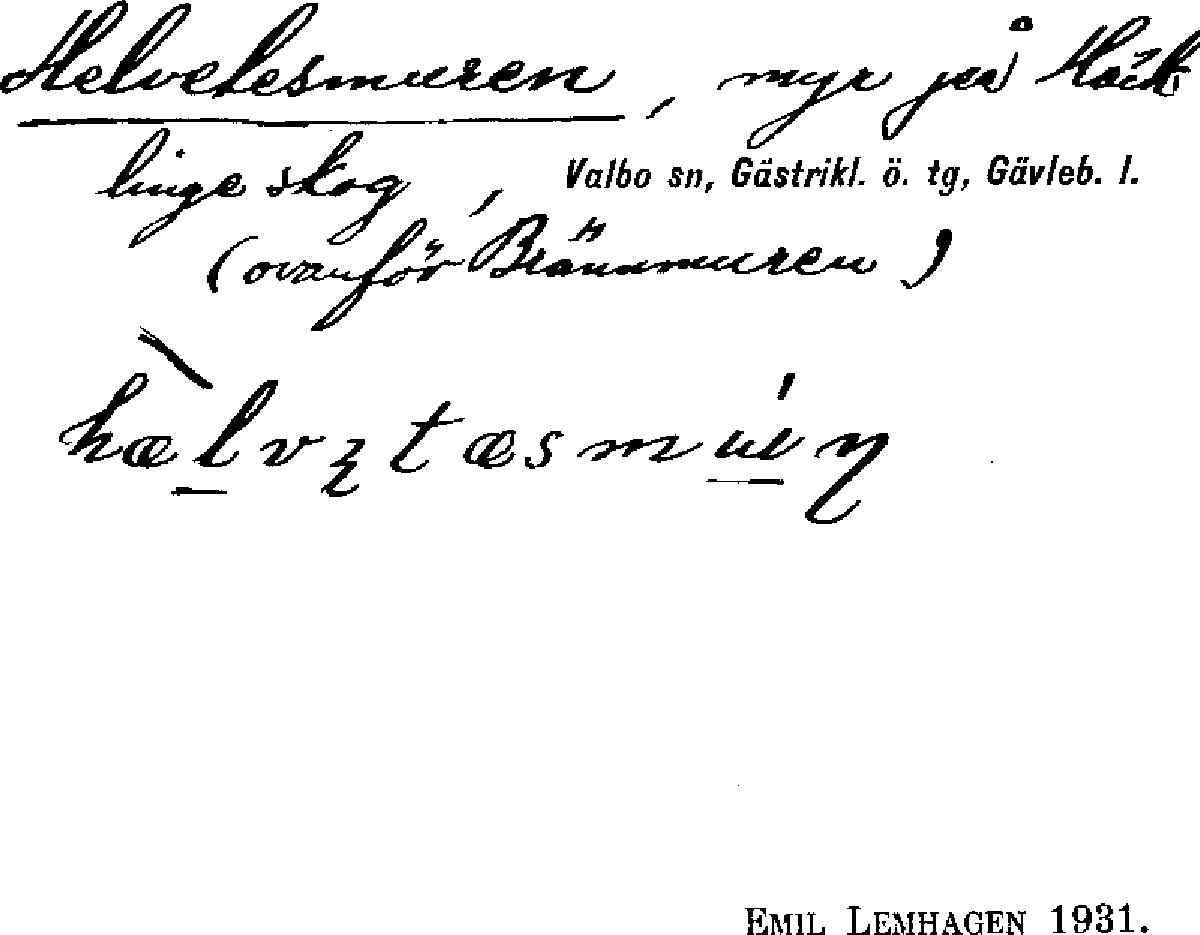 Helvetesmuren, myr på Häck-
linge skog, Valbo sn, Gästrikl. ö. tg, Gävleb. l.
(ovanför Brännmuren)
EMIL LEMHAGEN 1931.